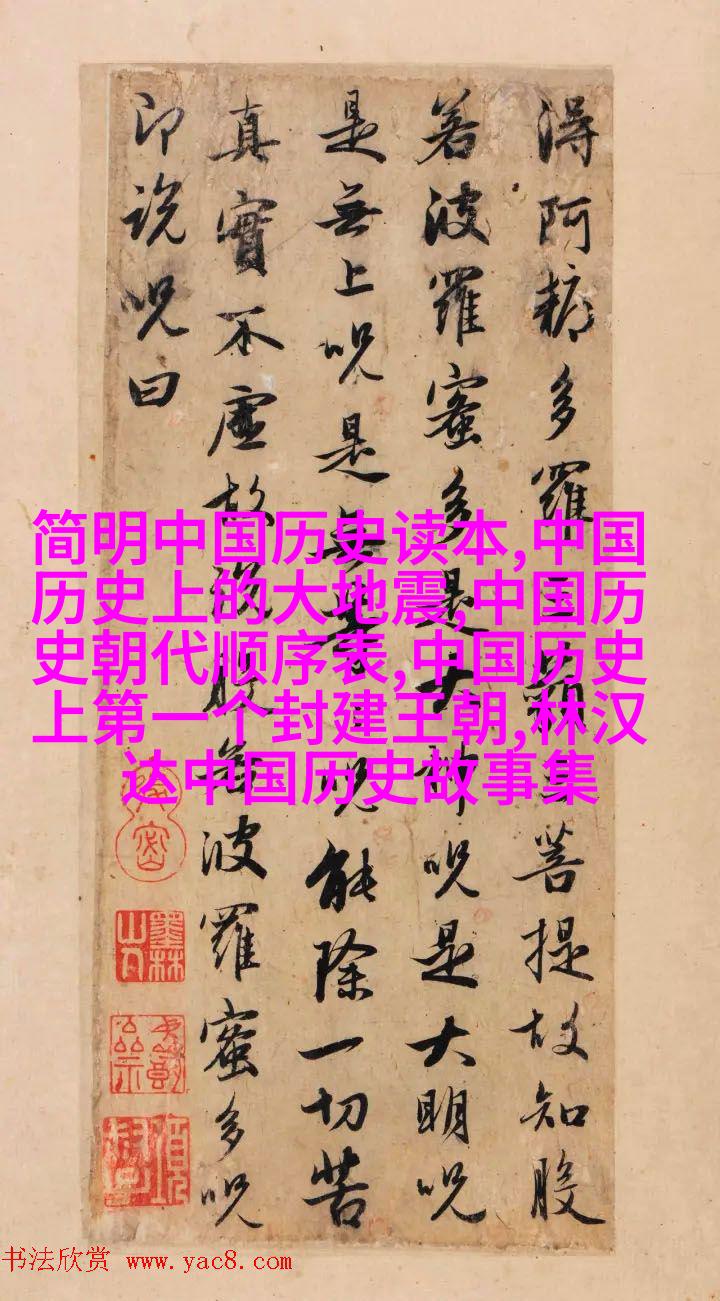 得阿耨多羅三藐三菩提故知般
若波羅蜜多是大神呪是大明呪
是無上呪是無等等呪能除一切苦
真實不虛故說般若波羅蜜多呪
即說呪曰
墨林山人
简明中国历史读本,中国
历史上的大地震,中国历
史朝代顺序表,中国历史
上第一个封建王朝,林汉
达中国历史故事集
书法欣赏 www.yac8.com